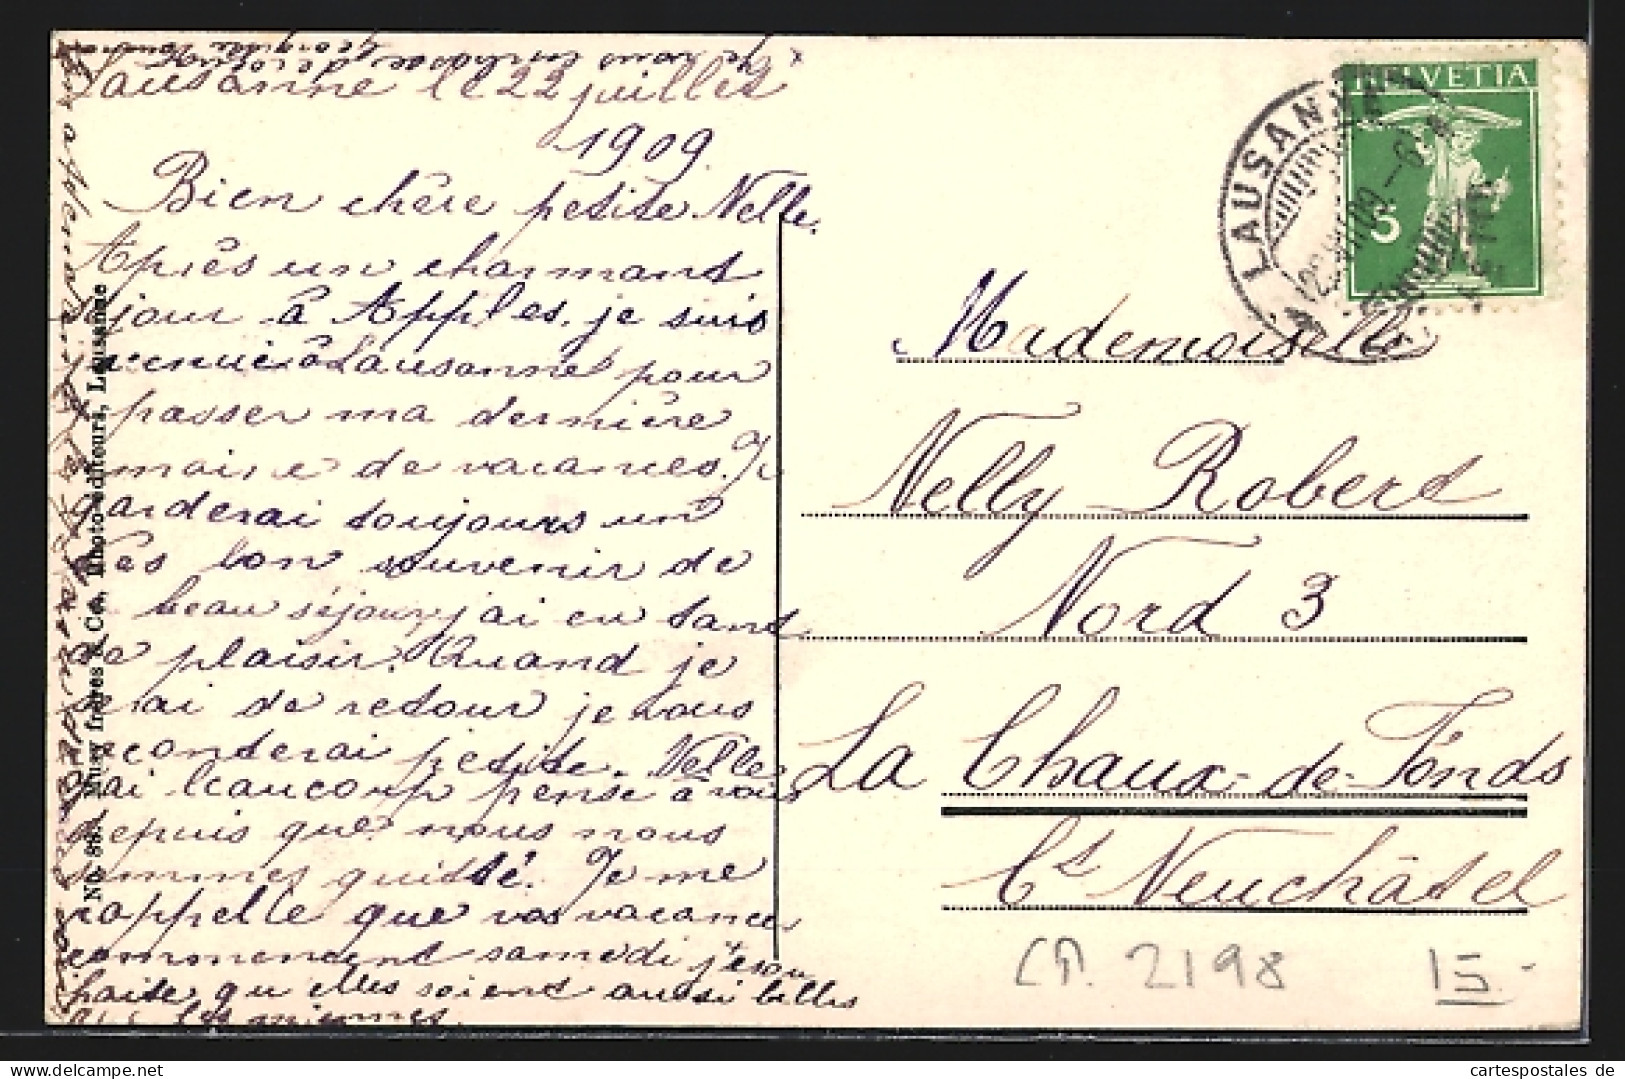 Lausanne le 22 juillet
1909
Bien chère petite Nelly.
Après un charmant
séjour à Apples, je suis
revenue à Lausanne pour
passer ma dernière
de vacances. Je
garderai toujours un
très bon souvenir de
beau séjour j'ai eu tant
de plaisir. Quand je
serai de retour je vous
raconterai petite Nelly
j'ai beaucoup pensé à vous
depuis que nous nous
sommes quitté. Je me
rappelle que vos vacances
commencent samedi j'esou
haite qu'elles soient aussi belles
que les miennes.
je vous embrasse
No. 88. frères & Co. Photo-éditeurs, Lausanne
HELVETIA
5
LAUSANNE
Mademoiselle
Nelly Robert
Nord 3
La Chaux-de-Fonds
Ct Neuchâtel
CP. 2198
15.-
cartespostales de
https://www.cartespostalesdelcampe.com